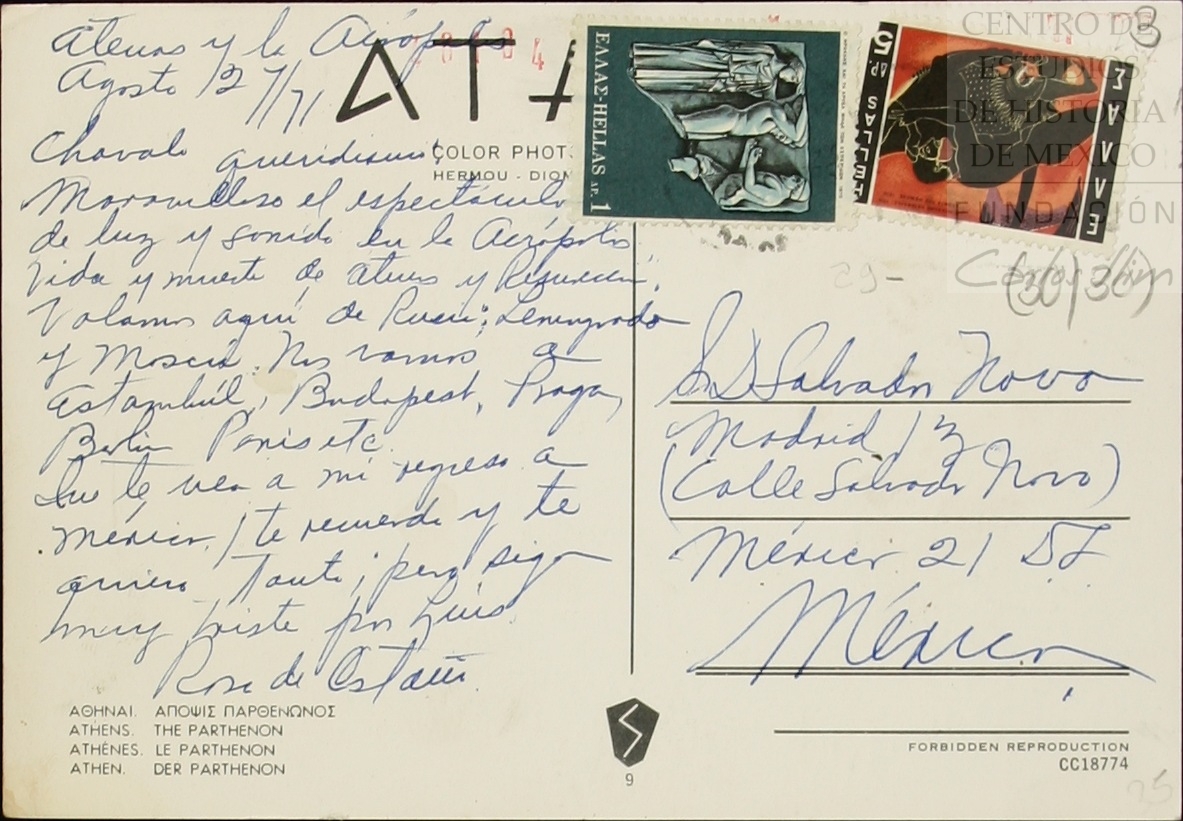 Atenas y la Acrópolis
Agosto 27/71
Chavalo queridísimo:
Maravilloso el espectáculo
de luz y sonido en la Acrópolis
Vida y muerte de Atenas y
Volamos aquí de Leningrado
y Moscú. Nos vamos a
Estambúl, Budapest, Praga,
Berlin Paris etc.
Que te vea a mi regreso a
México. ¡te recuerdo y te
quiero tanto; pero sigo
muy triste por Luis.
Rosa de
ΑΘΗΝΑΙ. ΑΠΟΨΙΣ ΠΑΡΘΕΝΩΝΟΣ
ATHENS. THE PARTHENON
ATHÈNES. LE PARTHENON
ATHEN. DER PARTHENON
ATA
COLOR PHOT
HERMOU - DIOM
ΕΛΛΑΣ-HELLAS ΔΡ. 1
ΕΛΛΑΣ
HELLAS
ΔΡ. 5
3
CENTRO DE
ESTUDIOS
DE HISTORIA
DE MÉXICO
FUNDACIÓN
Carlos Slim
29-
(30/36)
Sr D Salvador Novo
Madrid 13
(Calle Salvador Novo)
México 21 DF
México
9
FORBIDDEN REPRODUCTION
CC18774
25